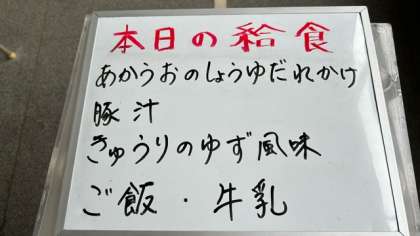 本日の給食
あかうおのしょうゆだれかけ
豚汁
きゅうりのゆず風味
ご飯・牛乳